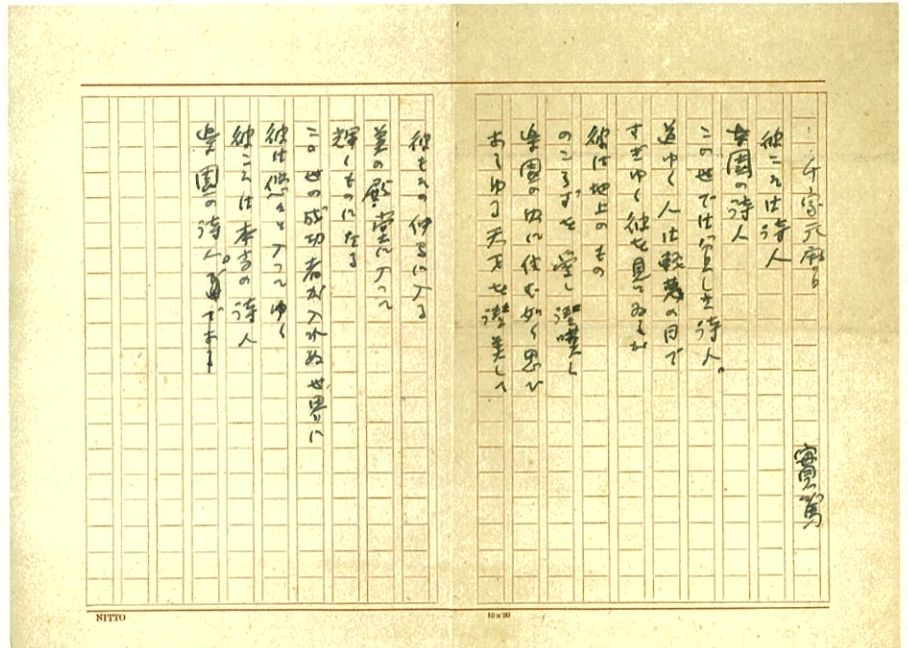 千家元麿
實篤
彼こそは詩人
楽園の詩人
この世では貧しき詩人。
道ゆく人は軽蔑の目で
すぎゆく彼を見てゐるが
彼は地上のもの
のこらずを愛し讃嘆し
楽園の内に住む如く思ひ
あらゆる天才を讃美して
彼もその仲間に入る
美の殿堂に入つて
輝くものになる
この世の成功者が入れぬ世界に
彼は悠々と入つてゆく
彼こそは本当の詩人
楽園の詩人。である
NITTO
10×20